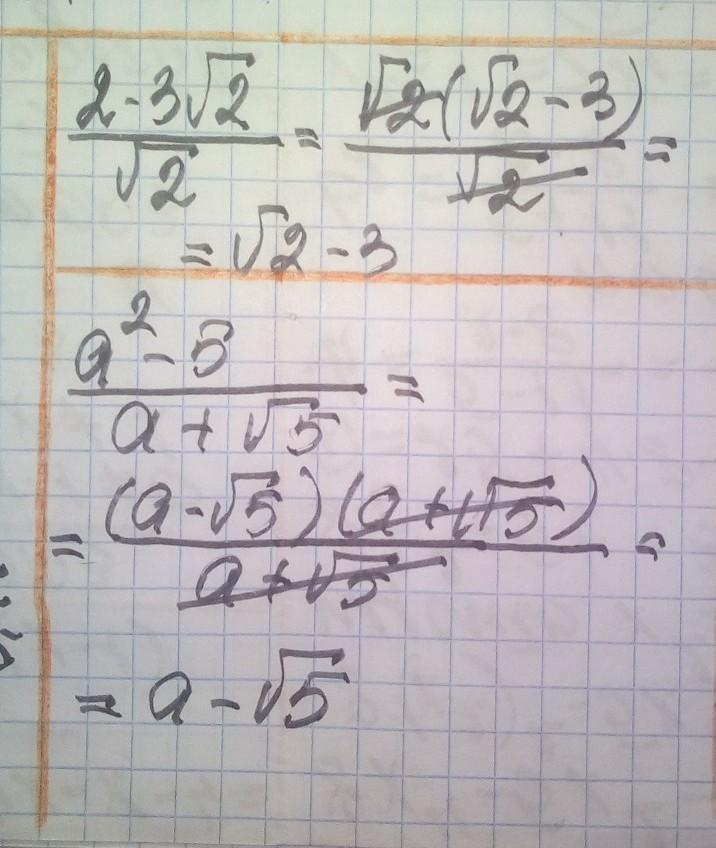 (2-3√2)/√2 = (√2(√2-3))/√2 =
= √2-3
(a²-5)/(a+√5) =
= ((a-√5)(a+√5))/(a+√5) =
= a-√5